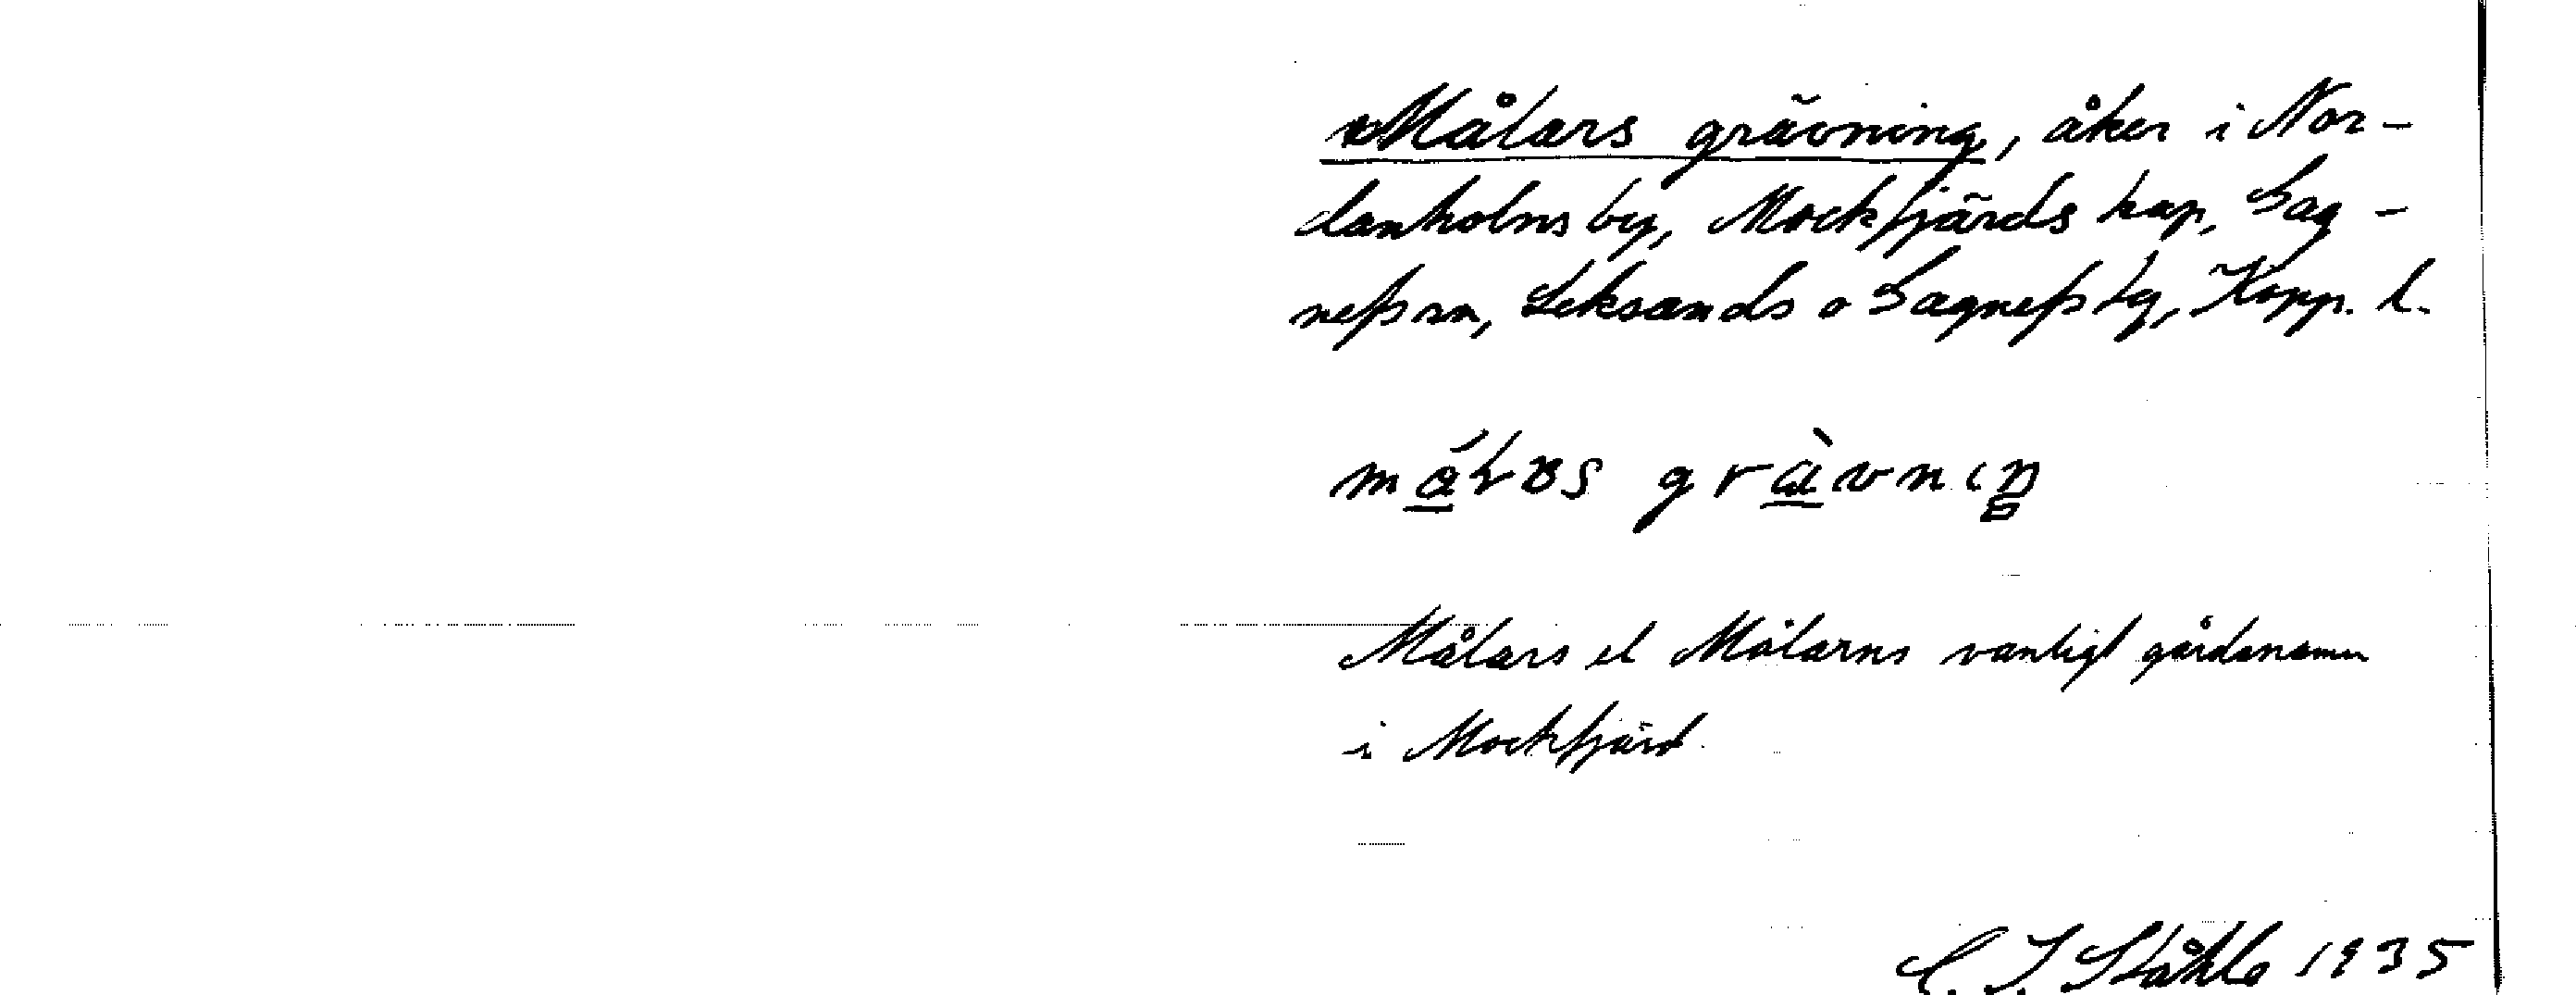 xMålars grävning, åker i Nor-
danholns by, Mockfjärds kap, Gag-
nefs sn, Leksands o Gagnefs tg, Kopp. l.
Målars el Målarns vanligt gårdsnamn
i Mockfjärd
C. I. Ståhle 1935